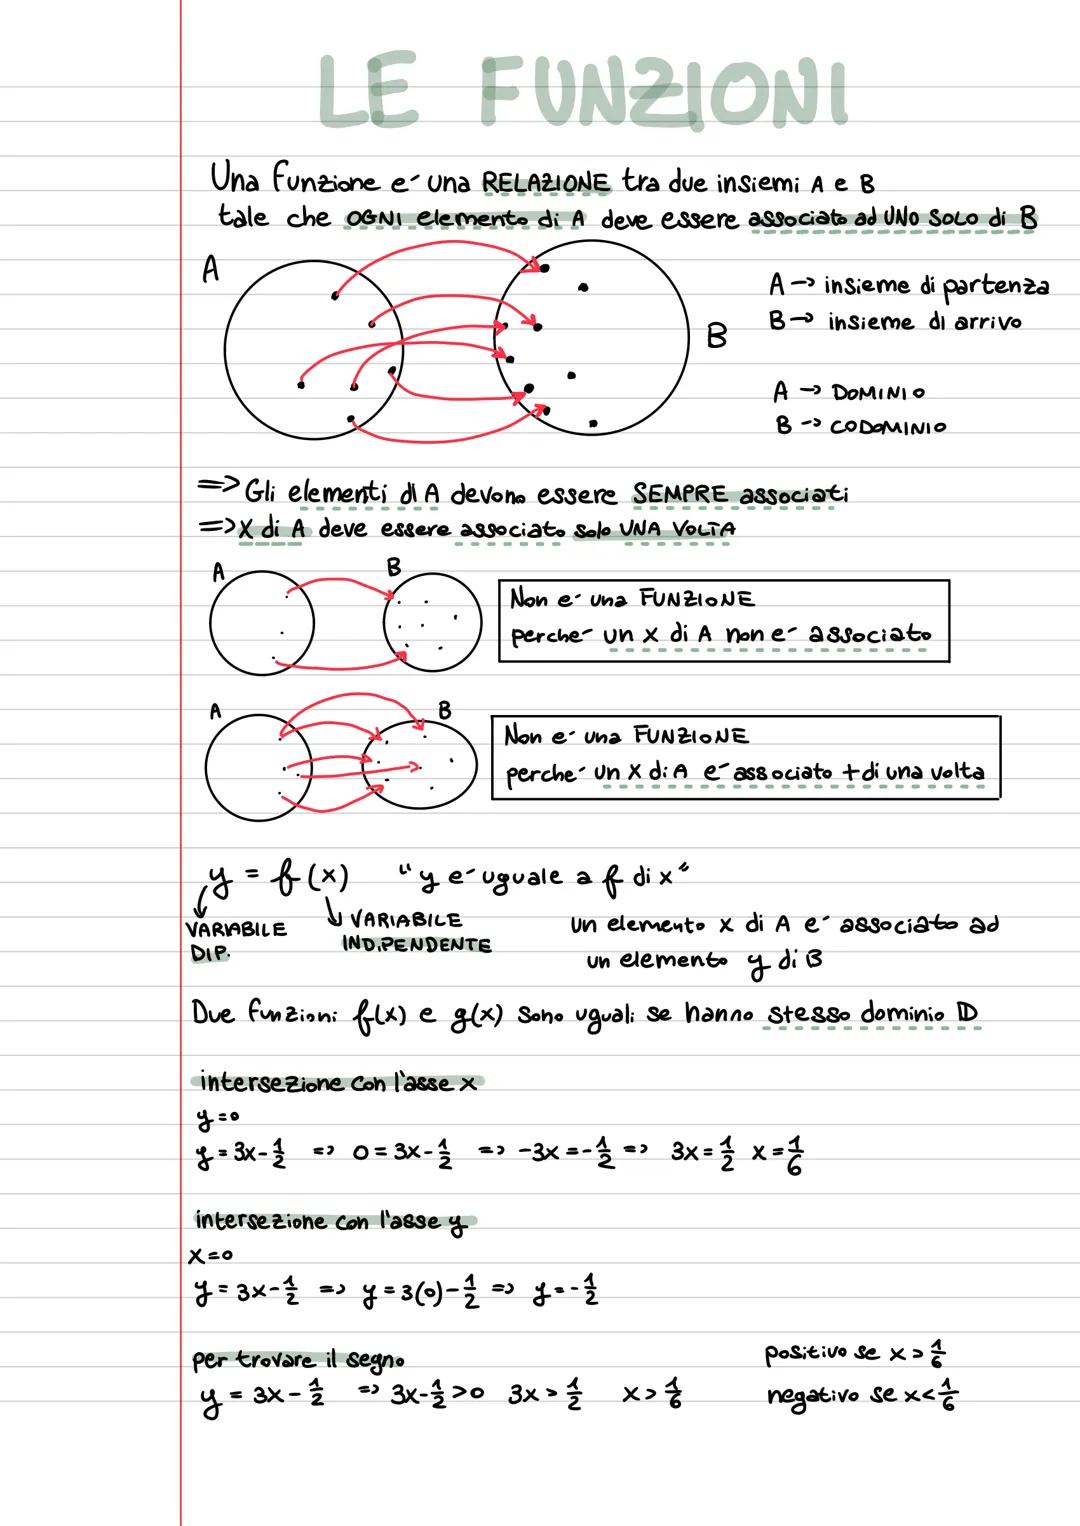 LE FUNZIONI
Una funzione e´ una RELAZIONE tra due insiemi A e B
tale che OGNI elemento di A deve essere associato ad UNO SOLO di B
A
B
A -> insieme di partenza
B -> insieme di arrivo
A -> DOMINIO
B -> CODOMINIO
=> Gli elementi di A devono essere SEMPRE associati
=> X di A deve essere associato solo UNA VOLTA
A B
Non e´ una FUNZIONE
perche´ un x di A non e´ associato
A B
Non e´ una FUNZIONE
perche´ un x di A e´ associato + di una volta
y = f(x) "y e´ uguale a f di x"
VARIABILE
DIP.
VARIABILE
INDIPENDENTE
un elemento x di A e´ associato ad
un elemento y di B
Due funzioni f(x) e g(x) sono uguali se hanno stesso dominio D
intersezione con l'asse x
y=0
y = 3x - 1/2 => 0 = 3x - 1/2 => -3x = -1/2 => 3x = 1/2 x = 1/6
intersezione con l'asse y
x=0
y = 3x - 1/2 => y = 3(0) - 1/2 => y = -1/2
per trovare il segno
y = 3x - 1/2 => 3x - 1/2 > 0 3x > 1/2 x > 1/6
positivo se x > 1/6
negativo se x < 1/6